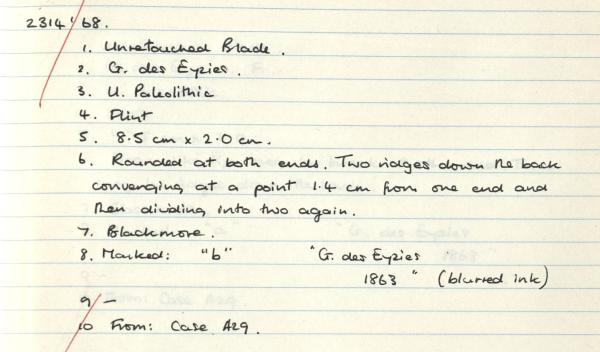 2314'68.
1. Unretouched Blade.
2. G. des Eyzies.
3. U. Paleolithic
4. Flint
5. 8.5 cm x 2.0 cm.
6. Rounded at both ends. Two ridges down the back
converging at a point 1.4 cm from one end and
then dividing into two again.
7. Blackmore.
8. Marked: "b" "G. des Eyzies
1863" (blurred ink)
9 –
10 From: Case A29.